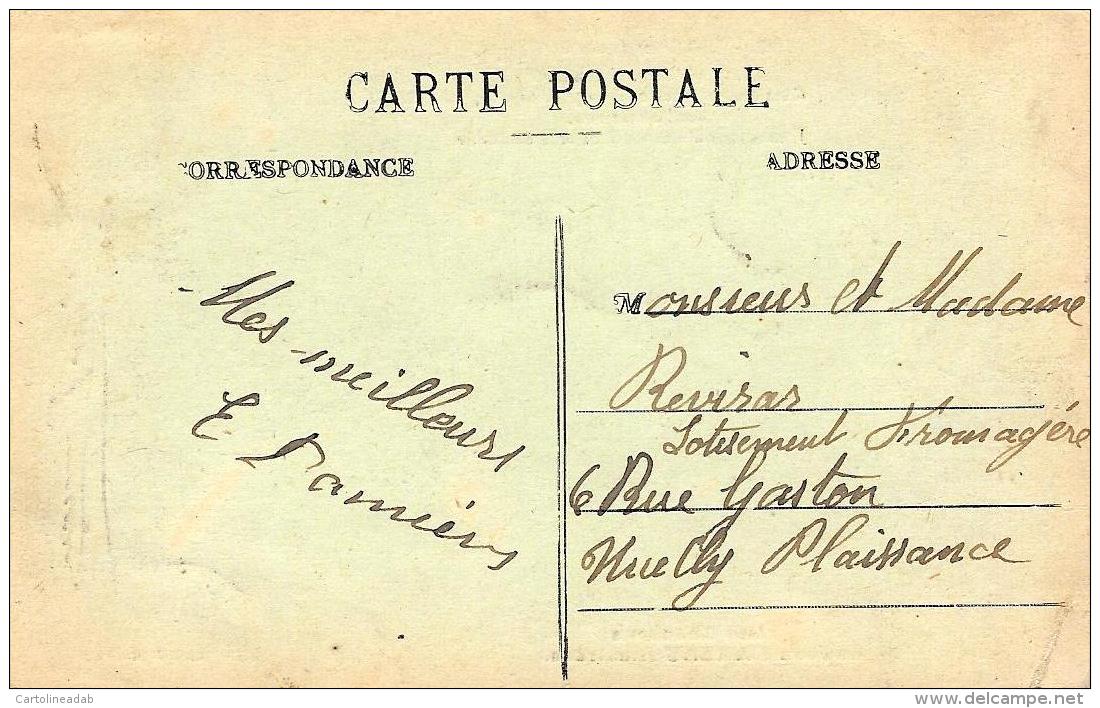 CARTE POSTALE
CORRESPONDANCE
ADRESSE
Mes meilleurs
E. Damiens
Monsieur et Madame
Revizar
Lotissement Fromagère
6 Rue Gaston
Nuelly Plaissance
Cartolineadab
www.delcampe.net